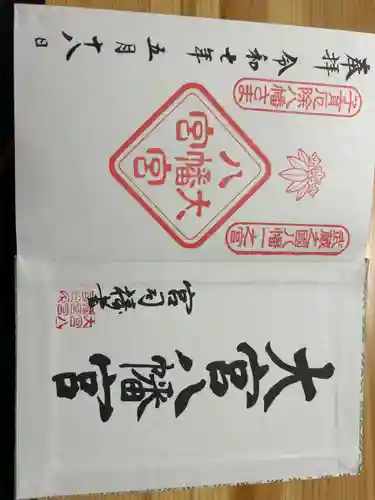 大宮八幡宮
宮司 書
武蔵之國八幡一之宮
大宮
八幡宮
子育厄除八幡さま
奉拝 令和七年五月十八日